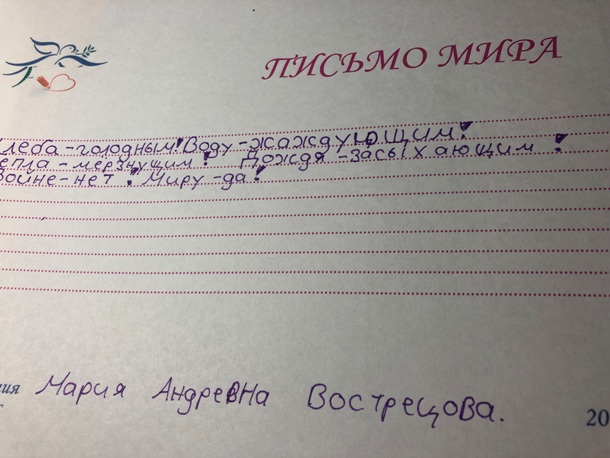 ПИСЬМО МИРА
леба-голодным! Воду-жаждующим!
епла-мерзнущим! Дождя-засыхающим!
войне-нет! Миру-да!
ия Мария Андревна Вострецова.
20